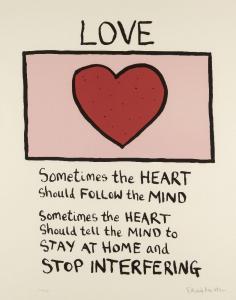 LOVE
Sometimes the HEART
Should FOLLOW the MIND
Sometimes the HEART
Should tell the MIND to
STAY AT HOME and
STOP INTERFERING